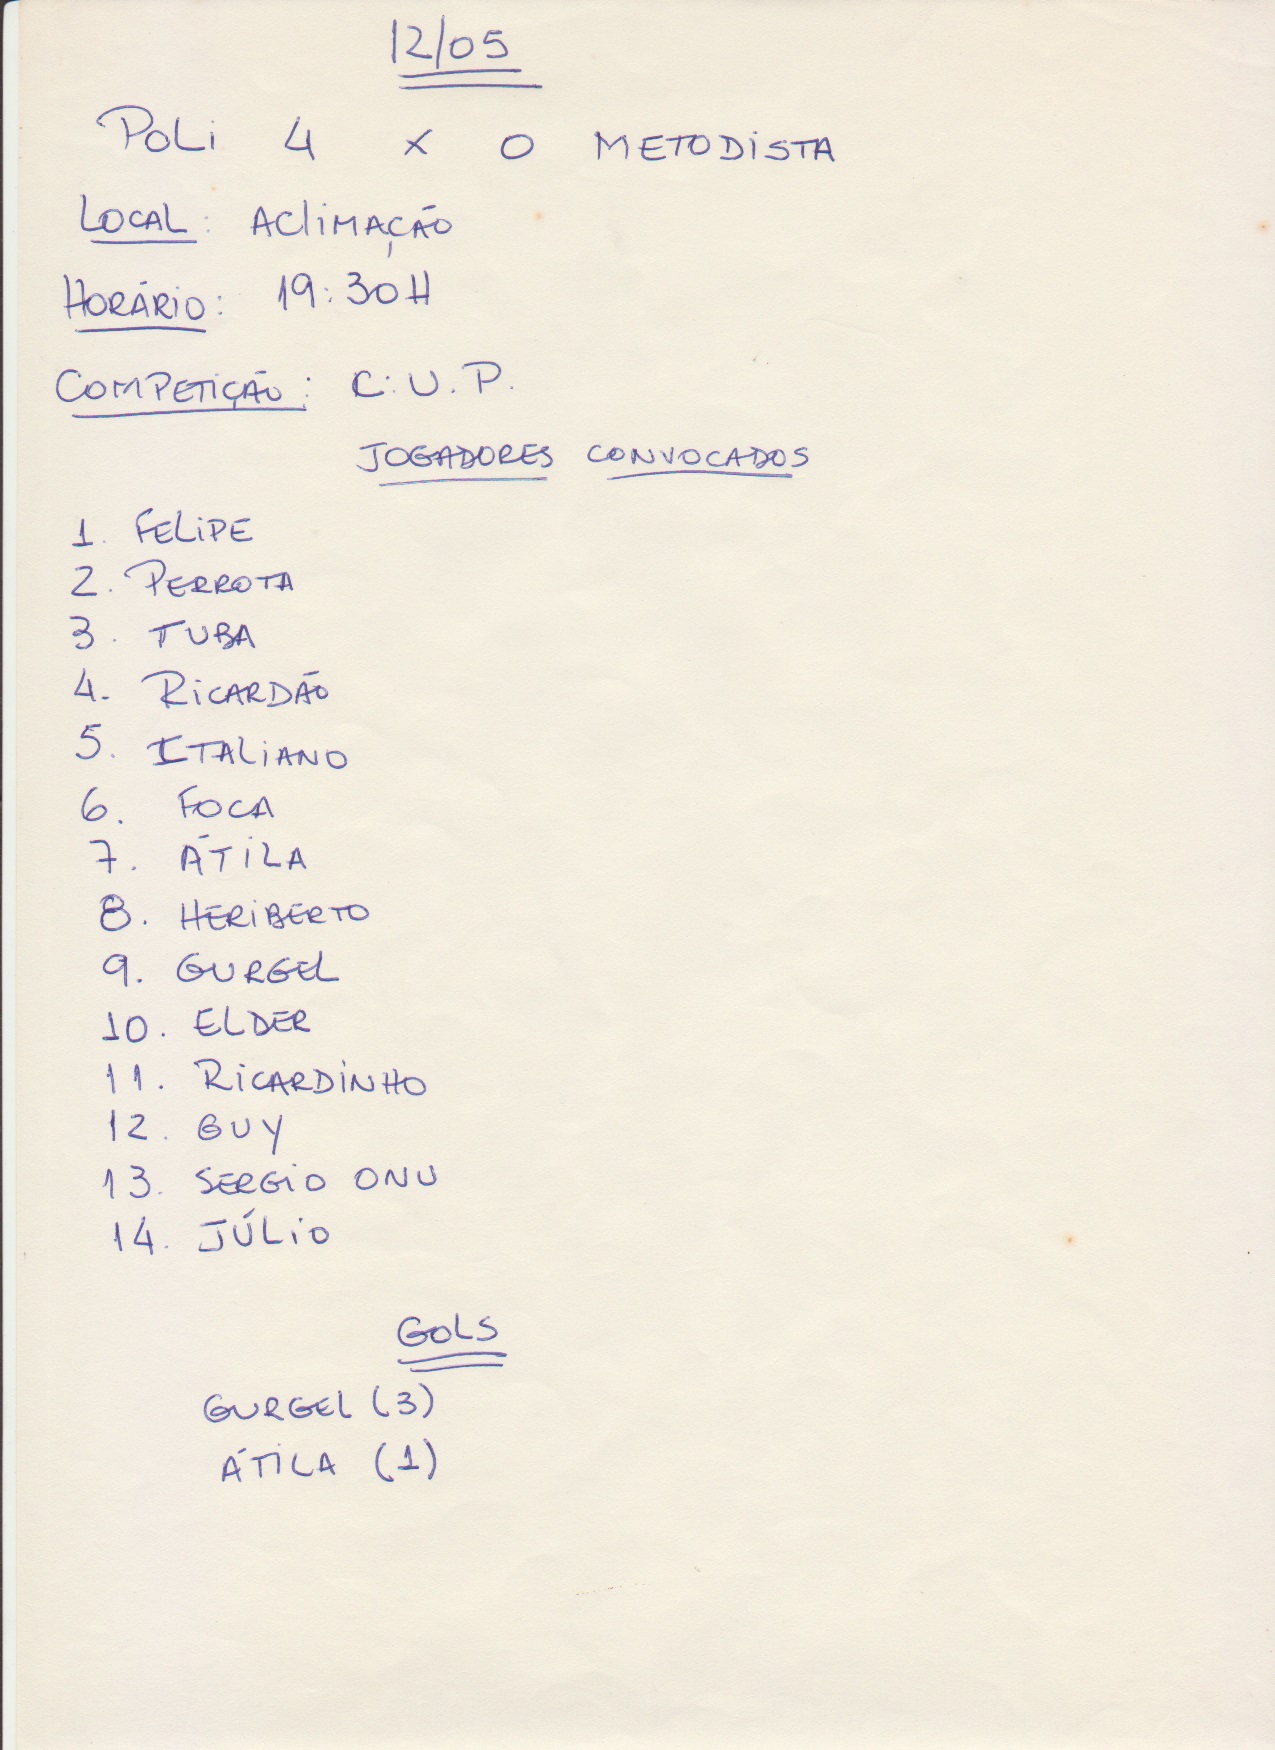 12/05
POLi 4 x 0 METODiSTA
LOCAL: ACliMAÇÃO
HORÁRiO: 19:30H
COMPETiÇÃO: C.U.P.
JOGADORES CONVOCADOS
1. FELiPE
2. PERROTA
3. TUBA
4. RiCARDÃO
5. ITALiANO
6. FOCA
7. ÁTiLA
8. HERiBERTO
9. GURGEL
10. ELDER
11. RiCARDiNHO
12. GUY
13. SERGiO ONU
14. JÚLiO
GOLS
GURGEL (3)
ÁTiLA (1)